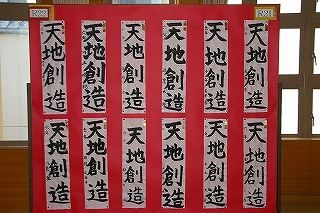 天地創造
天地創造
天地創造
天地創造
天地創造
天地創造
天地創造
天地創造
天地創造
天地創造
天地創造
天地創造